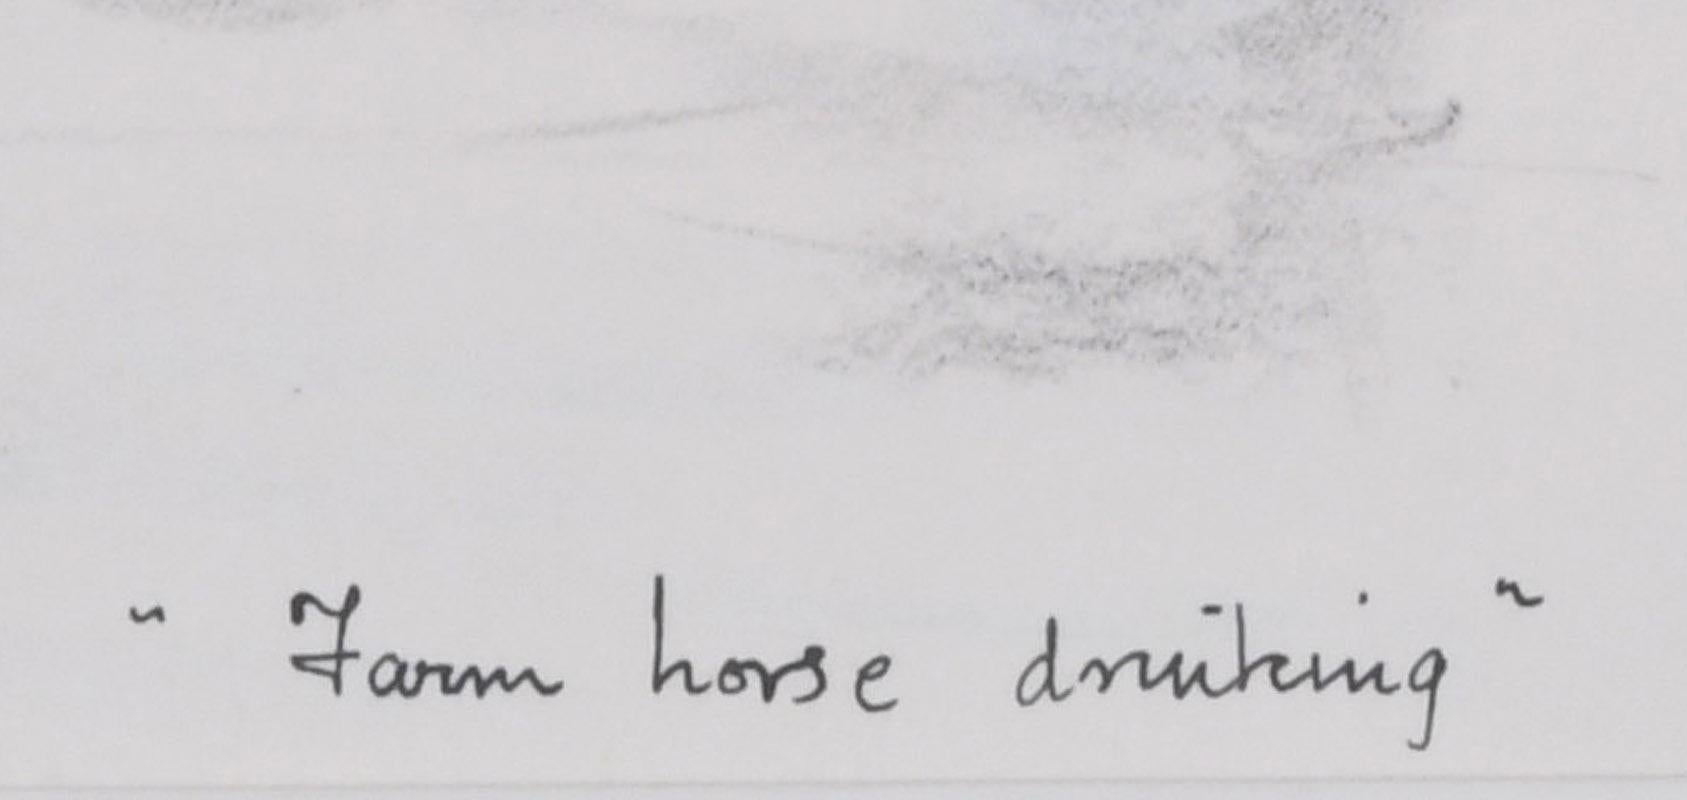 "Farm horse drinking"